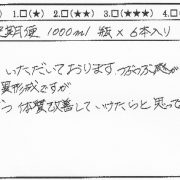 1.□(★) 2.□(★★) 3.□(★★★) 4.□(
定期便 1000ml 瓶×6本入り
いただいております。つぶつぶ感が
質形成ですが
つ 体質改善していけたらと思って